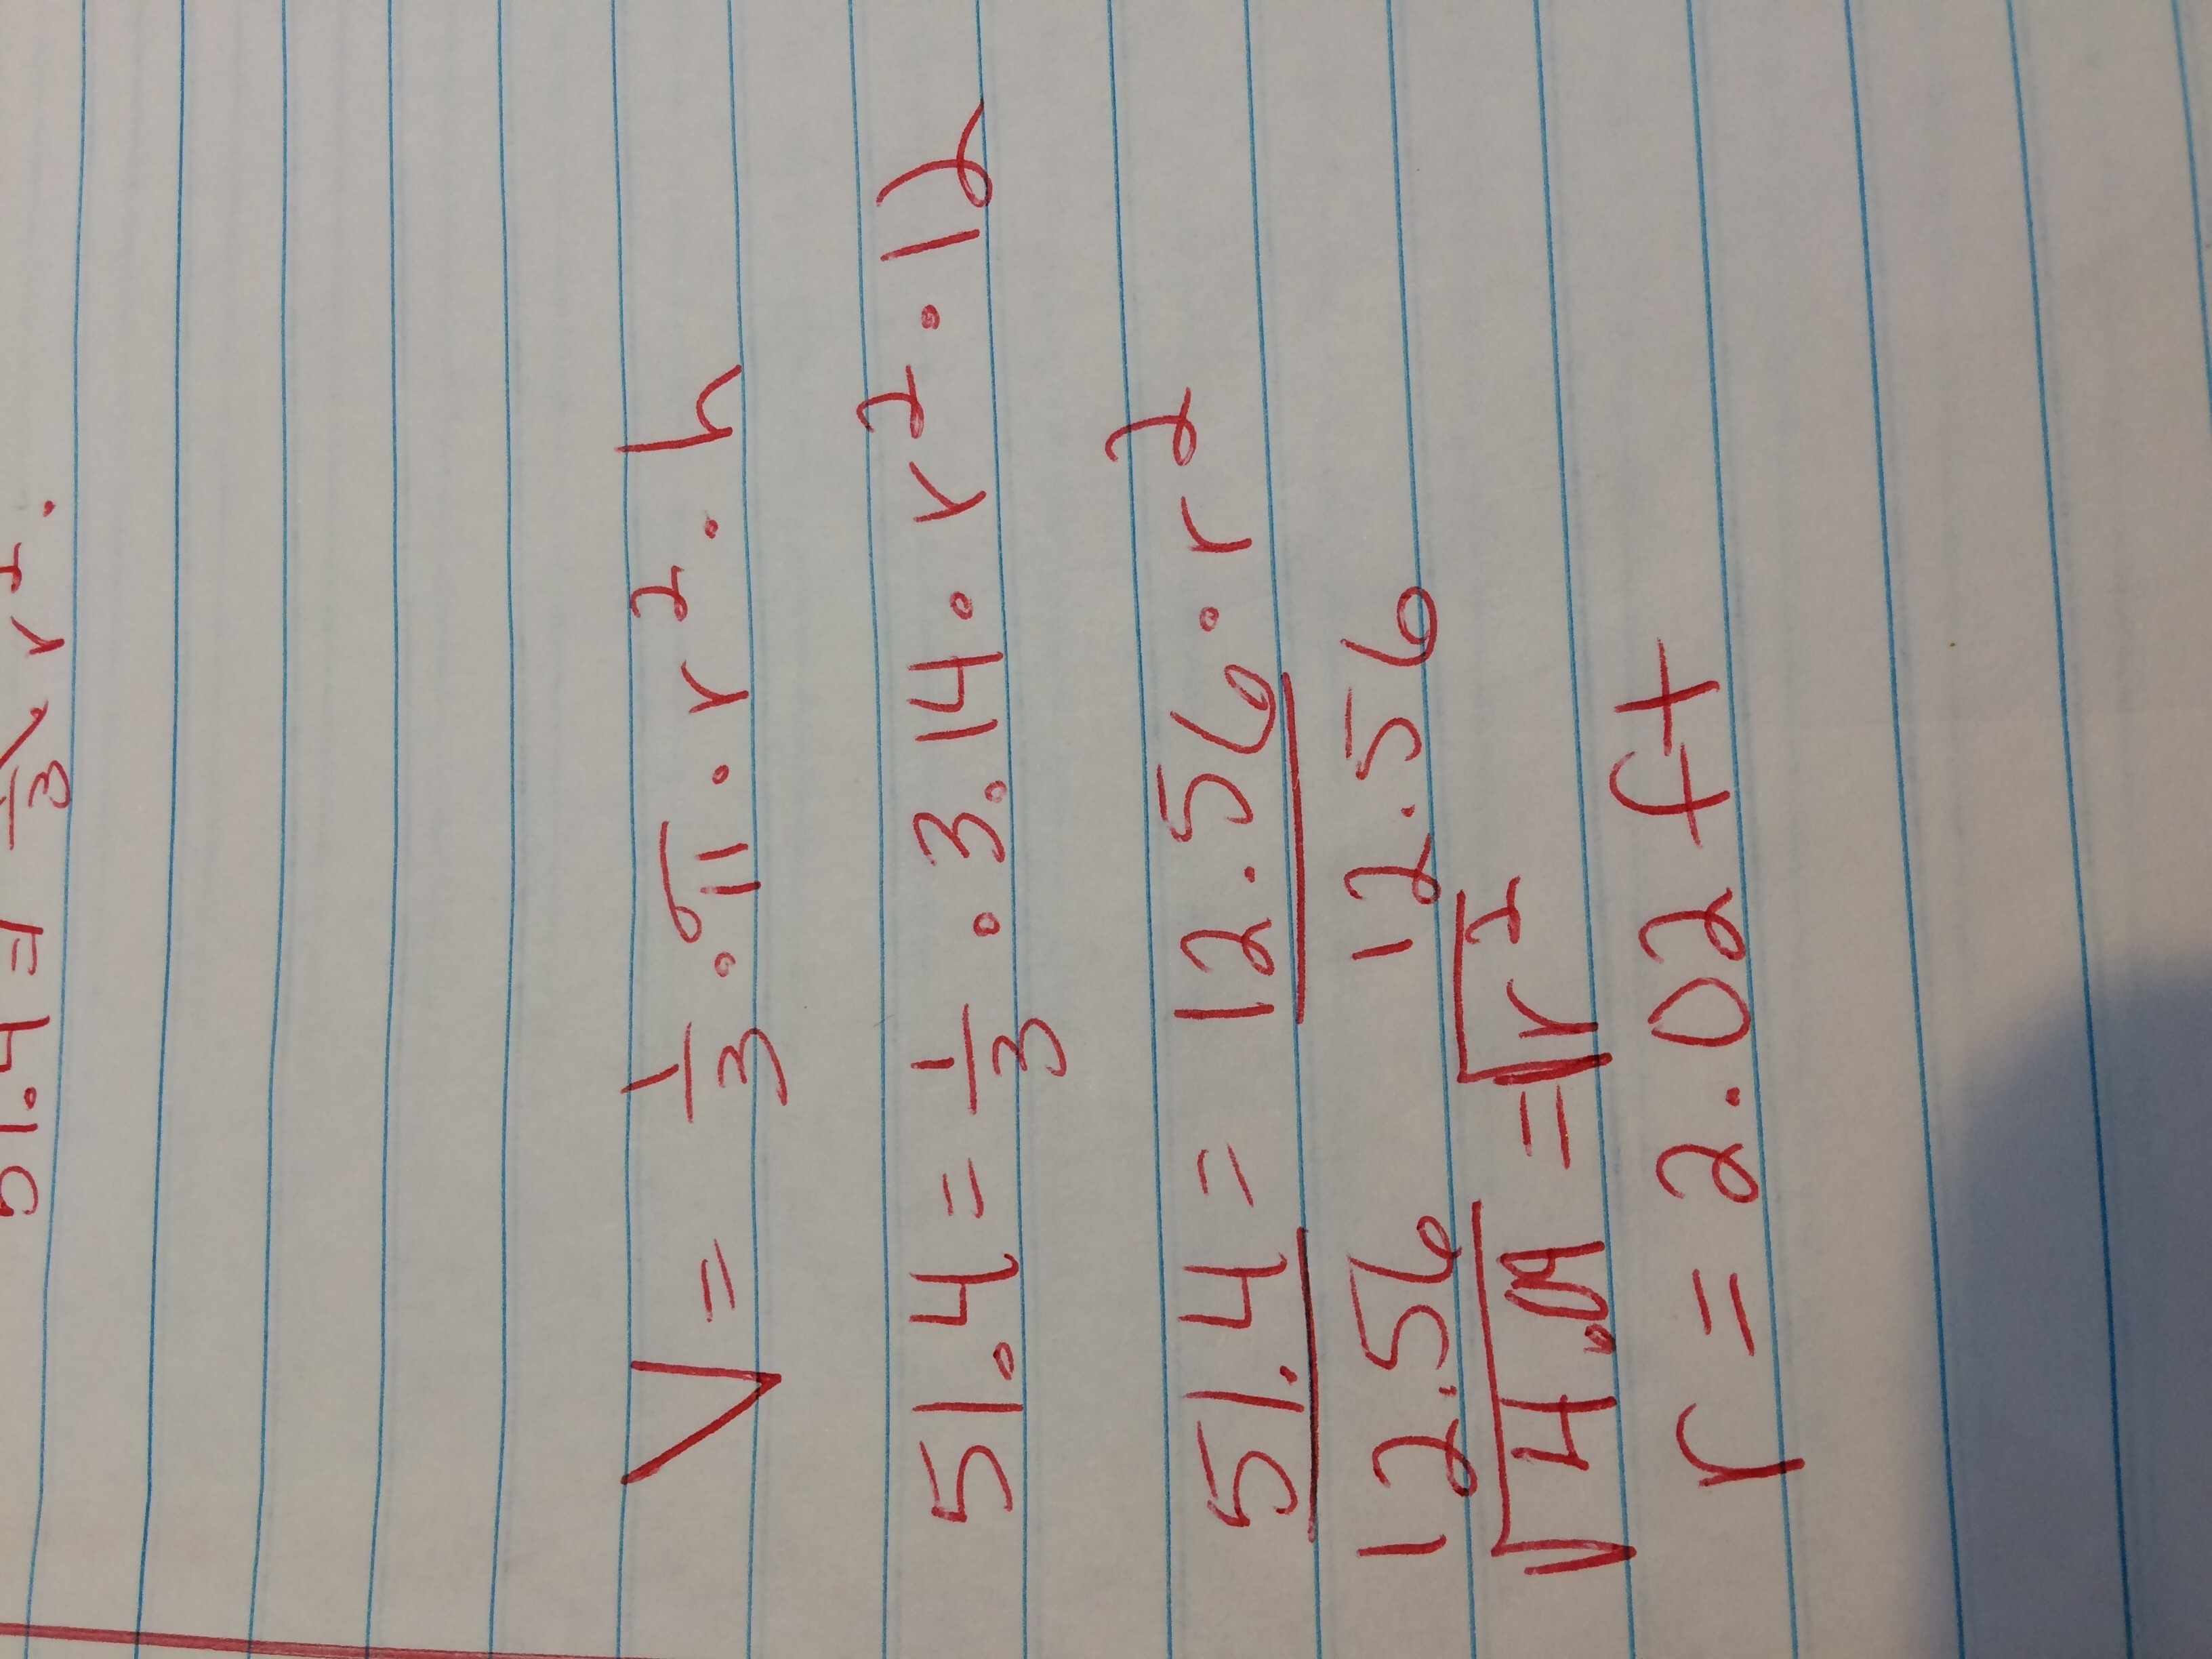 51.4 = 1/3 r².
V = 1/3 · π · r² · h
51.4 = 1/3 · 3.14 · r² · 12
51.4 = 12.56 · r²
12.56 12.56
√4.09 = √r²
r = 2.02 ft